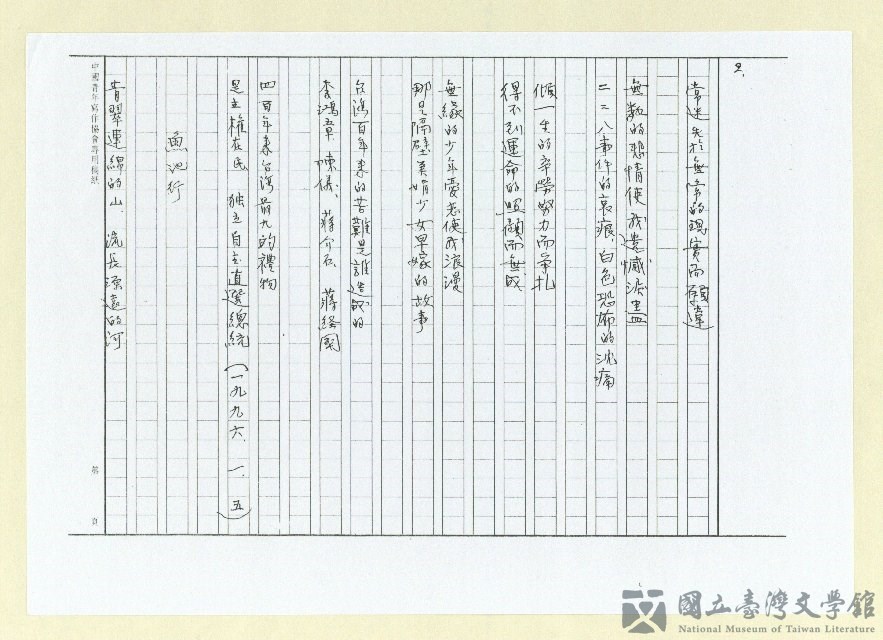 2.
常迷失於無常的現實而顛連
無數的悲情使我遺憾淚盅
二二八事件的哀痕,白色恐怖的沈痛
傾一生的辛勞努力而爭扎
得不到運命的照顧而無成
無緣的少年愛惹使我浪漫
那是隔壁美娟少女早嫁的故事
台灣百年來的苦難是誰造成的
李鴻章、陳儀、蔣介石、蔣經國
四百年來台灣最大的禮物
是主權在民 獨立自主直選總統(一九九六、一、五)
魚池行
青翠連綿的山、流長源遠的河
中國青年寫作協會專用稿紙
第 頁
國立臺灣文學館
National Museum of Taiwan Literature